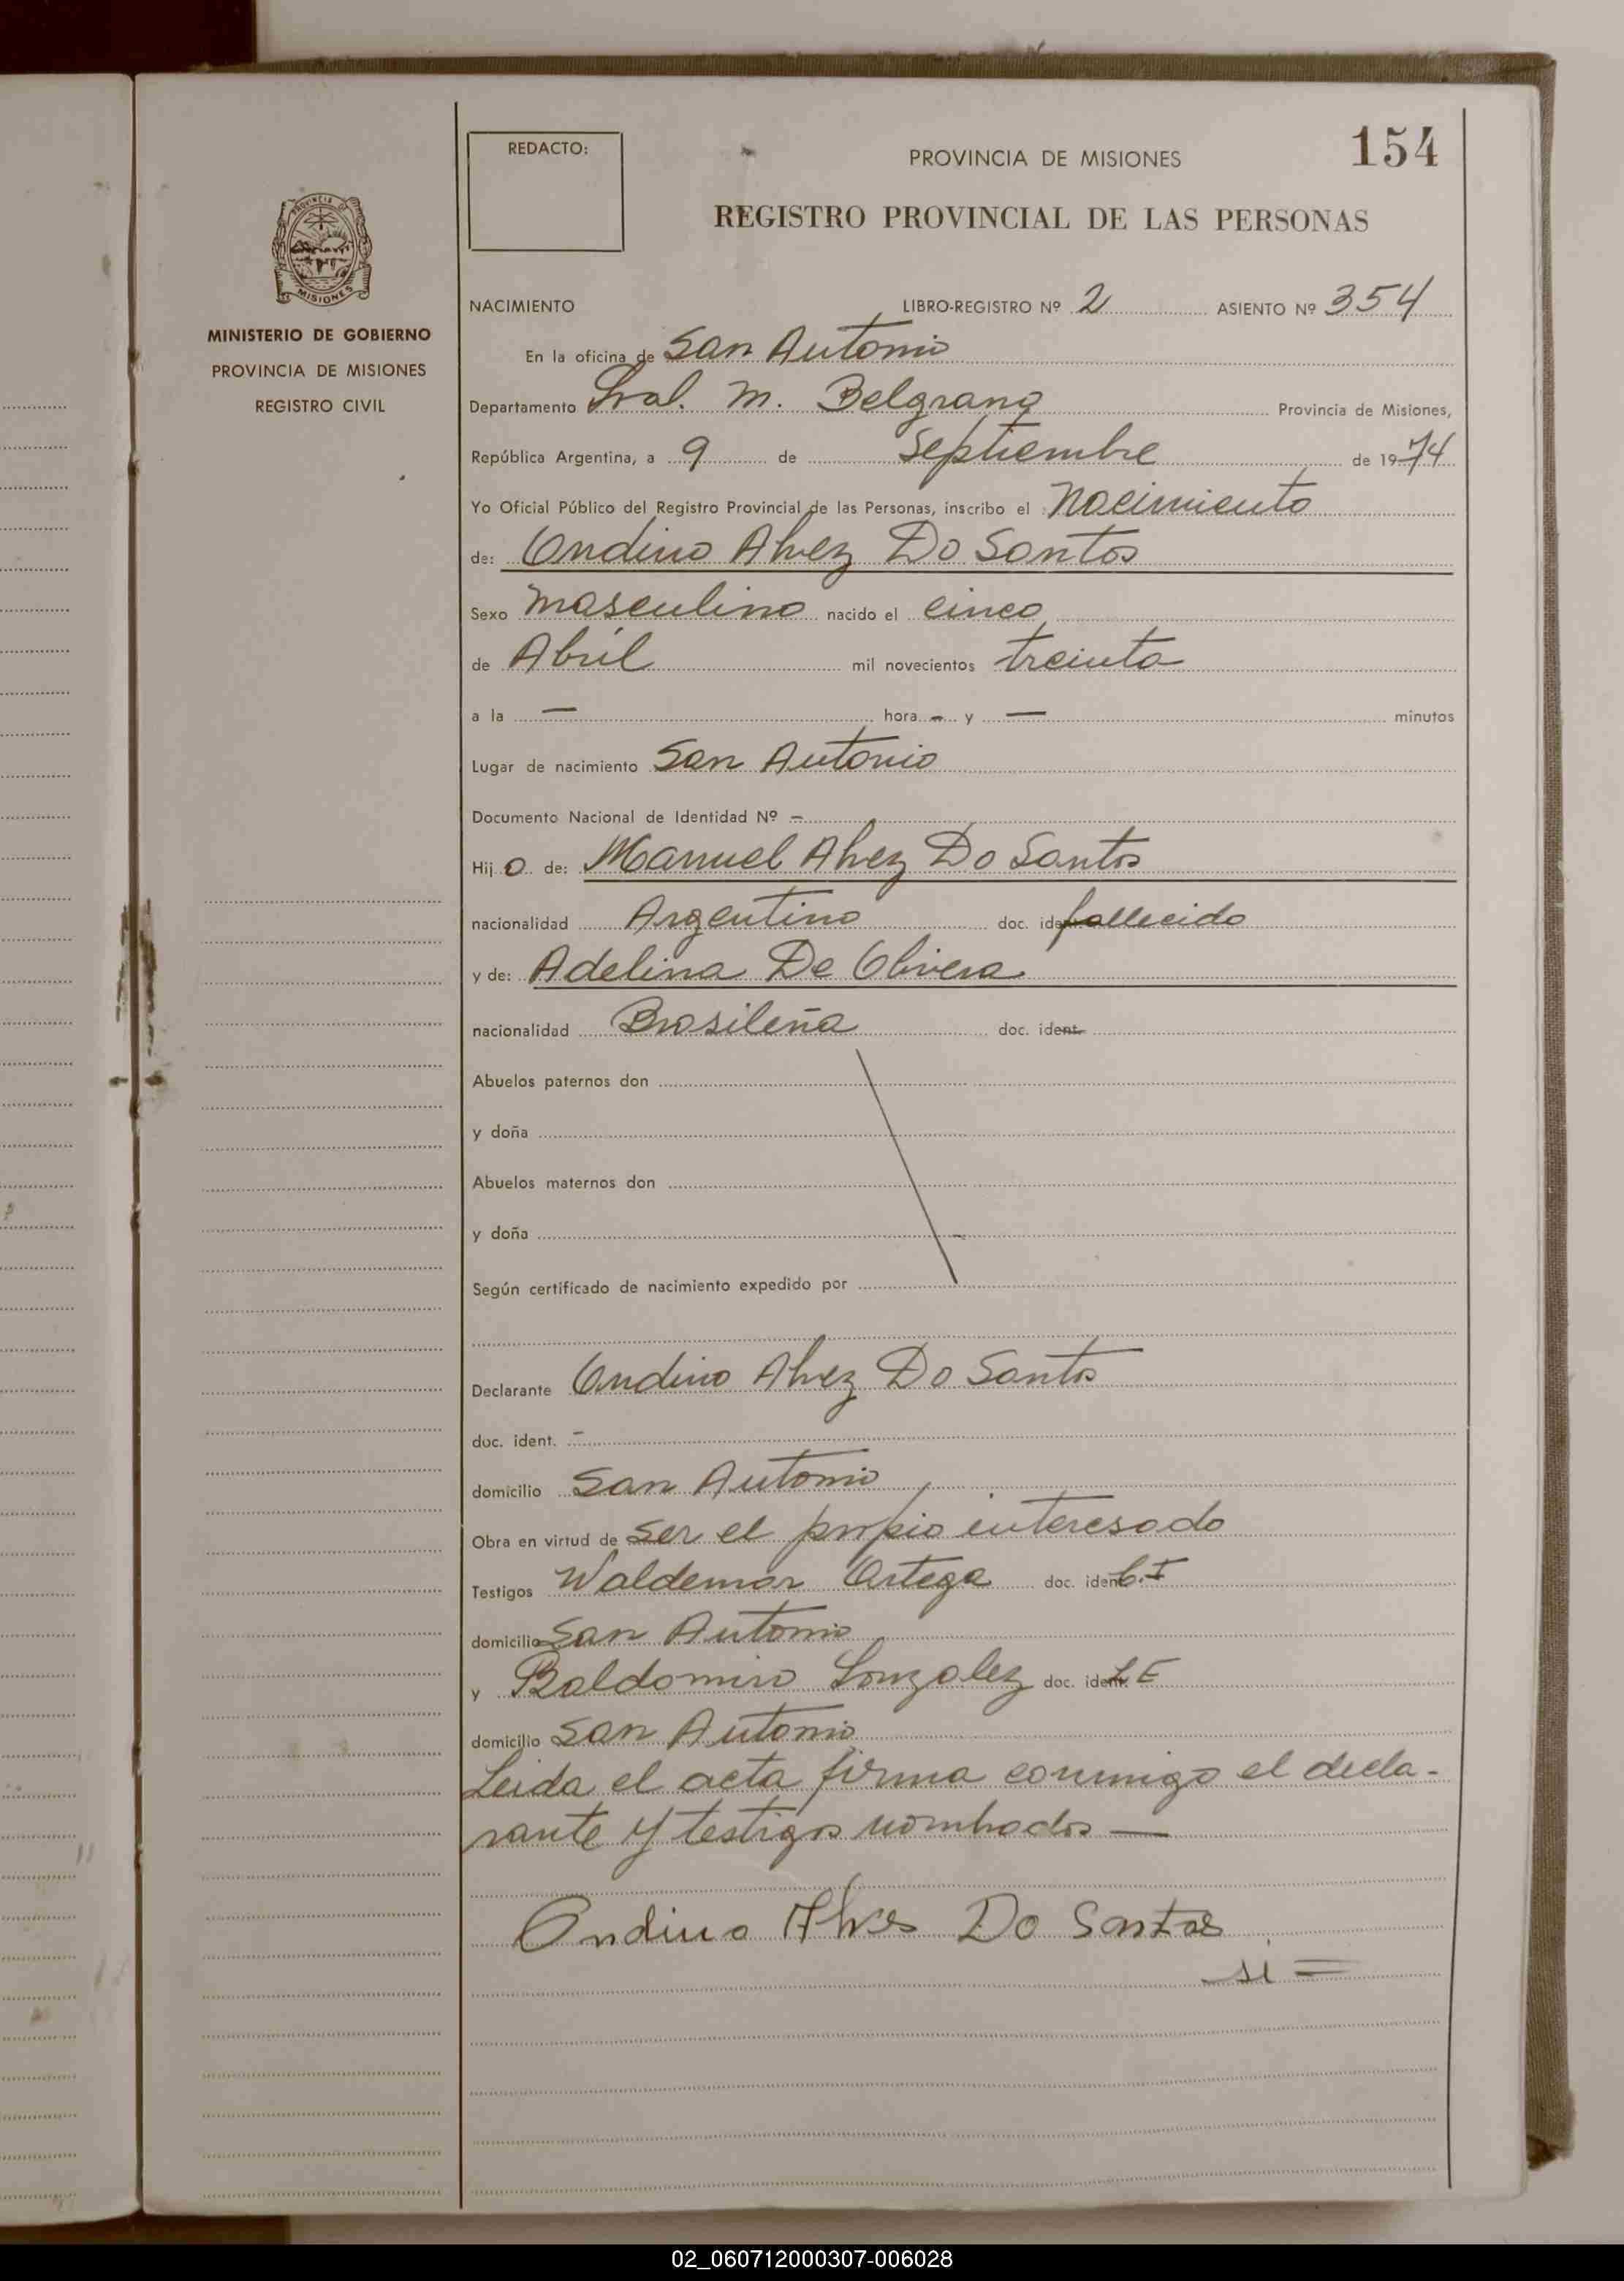 154
REDACTO:
PROVINCIA DE MISIONES
REGISTRO PROVINCIAL DE LAS PERSONAS
PROVINCIA DE MISIONES
MINISTERIO DE GOBIERNO
PROVINCIA DE MISIONES
REGISTRO CIVIL
NACIMIENTO LIBRO-REGISTRO Nº 2 ASIENTO Nº 354
En la oficina de San Antonio
Departamento Gral. M. Belgrano Provincia de Misiones,
República Argentina, a 9 de Septiembre de 1974
Yo Oficial Público del Registro Provincial de las Personas, inscribo el Nacimiento
de: Ondino Alvez Do Santos
Sexo masculino nacido el cinco
de Abril mil novecientos treinta
a la — hora - y — minutos
Lugar de nacimiento San Antonio
Documento Nacional de Identidad Nº -
Hijo de: Manuel Alvez Do Santos
nacionalidad Argentino doc. ident. fallecido
y de: Adelina De Olivera
nacionalidad Brasileña doc. ident. -
Abuelos paternos don
y doña
Abuelos maternos don
y doña
Según certificado de nacimiento expedido por
Declarante Ondino Alvez Do Santos
doc. ident. -
domicilio San Antonio
Obra en virtud de ser el propio interesado
Testigos Waldemar Ortega doc. ident. C.I
domicilio San Antonio
y Baldomiro Gonzalez doc. ident. L E
domicilio San Antonio
Leida el acta firma conmigo el decla-
rante y testigos nombrados —
Ondino Alves Do Santos
si =
02_060712000307-006028